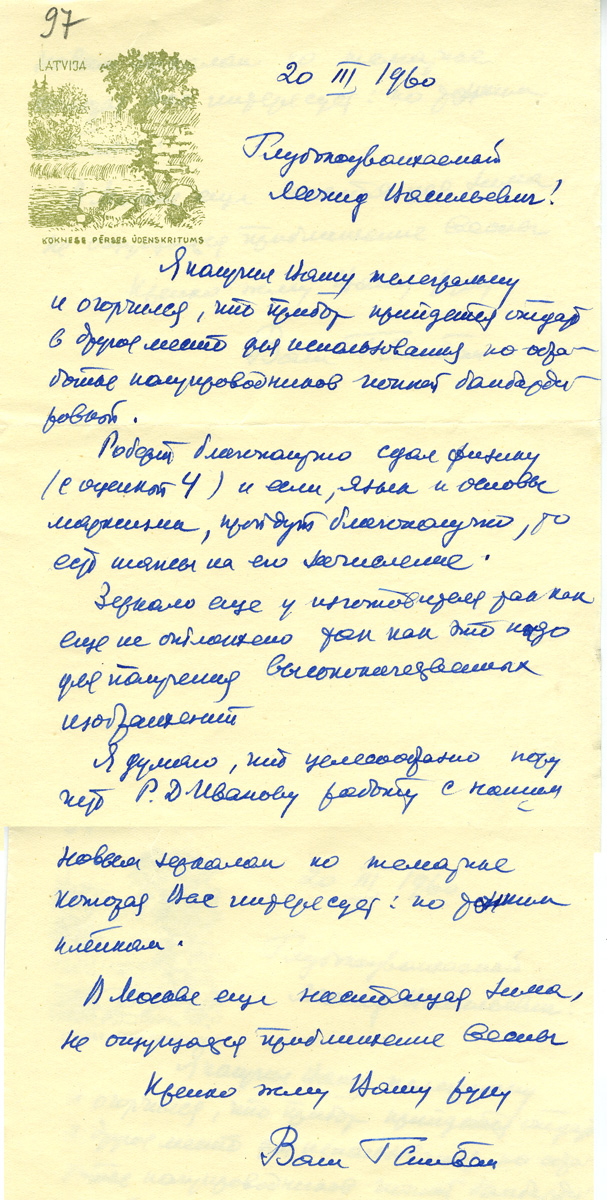 97
LATVIJA
KOKNESE PĒRSES ŪDENSKRITUMS
20 III 1960
Глубокоуважаемый
Леонид Васильевич!
Я получил Вашу телеграмму
и огорчился, что прибор придется отдать
в другое место для использования по обра-
ботке полупроводников ионной бомбарди-
ровкой.
Роберт благополучно сдал физику
(с оценкой 4) и если, язык и основы
марксизма, пройдут благополучно, то
есть шансы на его зачисление.
Зеркало еще у изготовителя так как
еще не отлажено так как это надо
для получения высококачественных
изображений
Я думаю, что целесообразно пору
чить Р. Д. Иванову работу с нашим
новым зеркалом по тематике
которая Вас интересует: по тонким
плёнкам.
В Москве еще настоящая зима,
не ощущается приближение весны
Крепко жму Вашу руку
Ваш Г Спивак